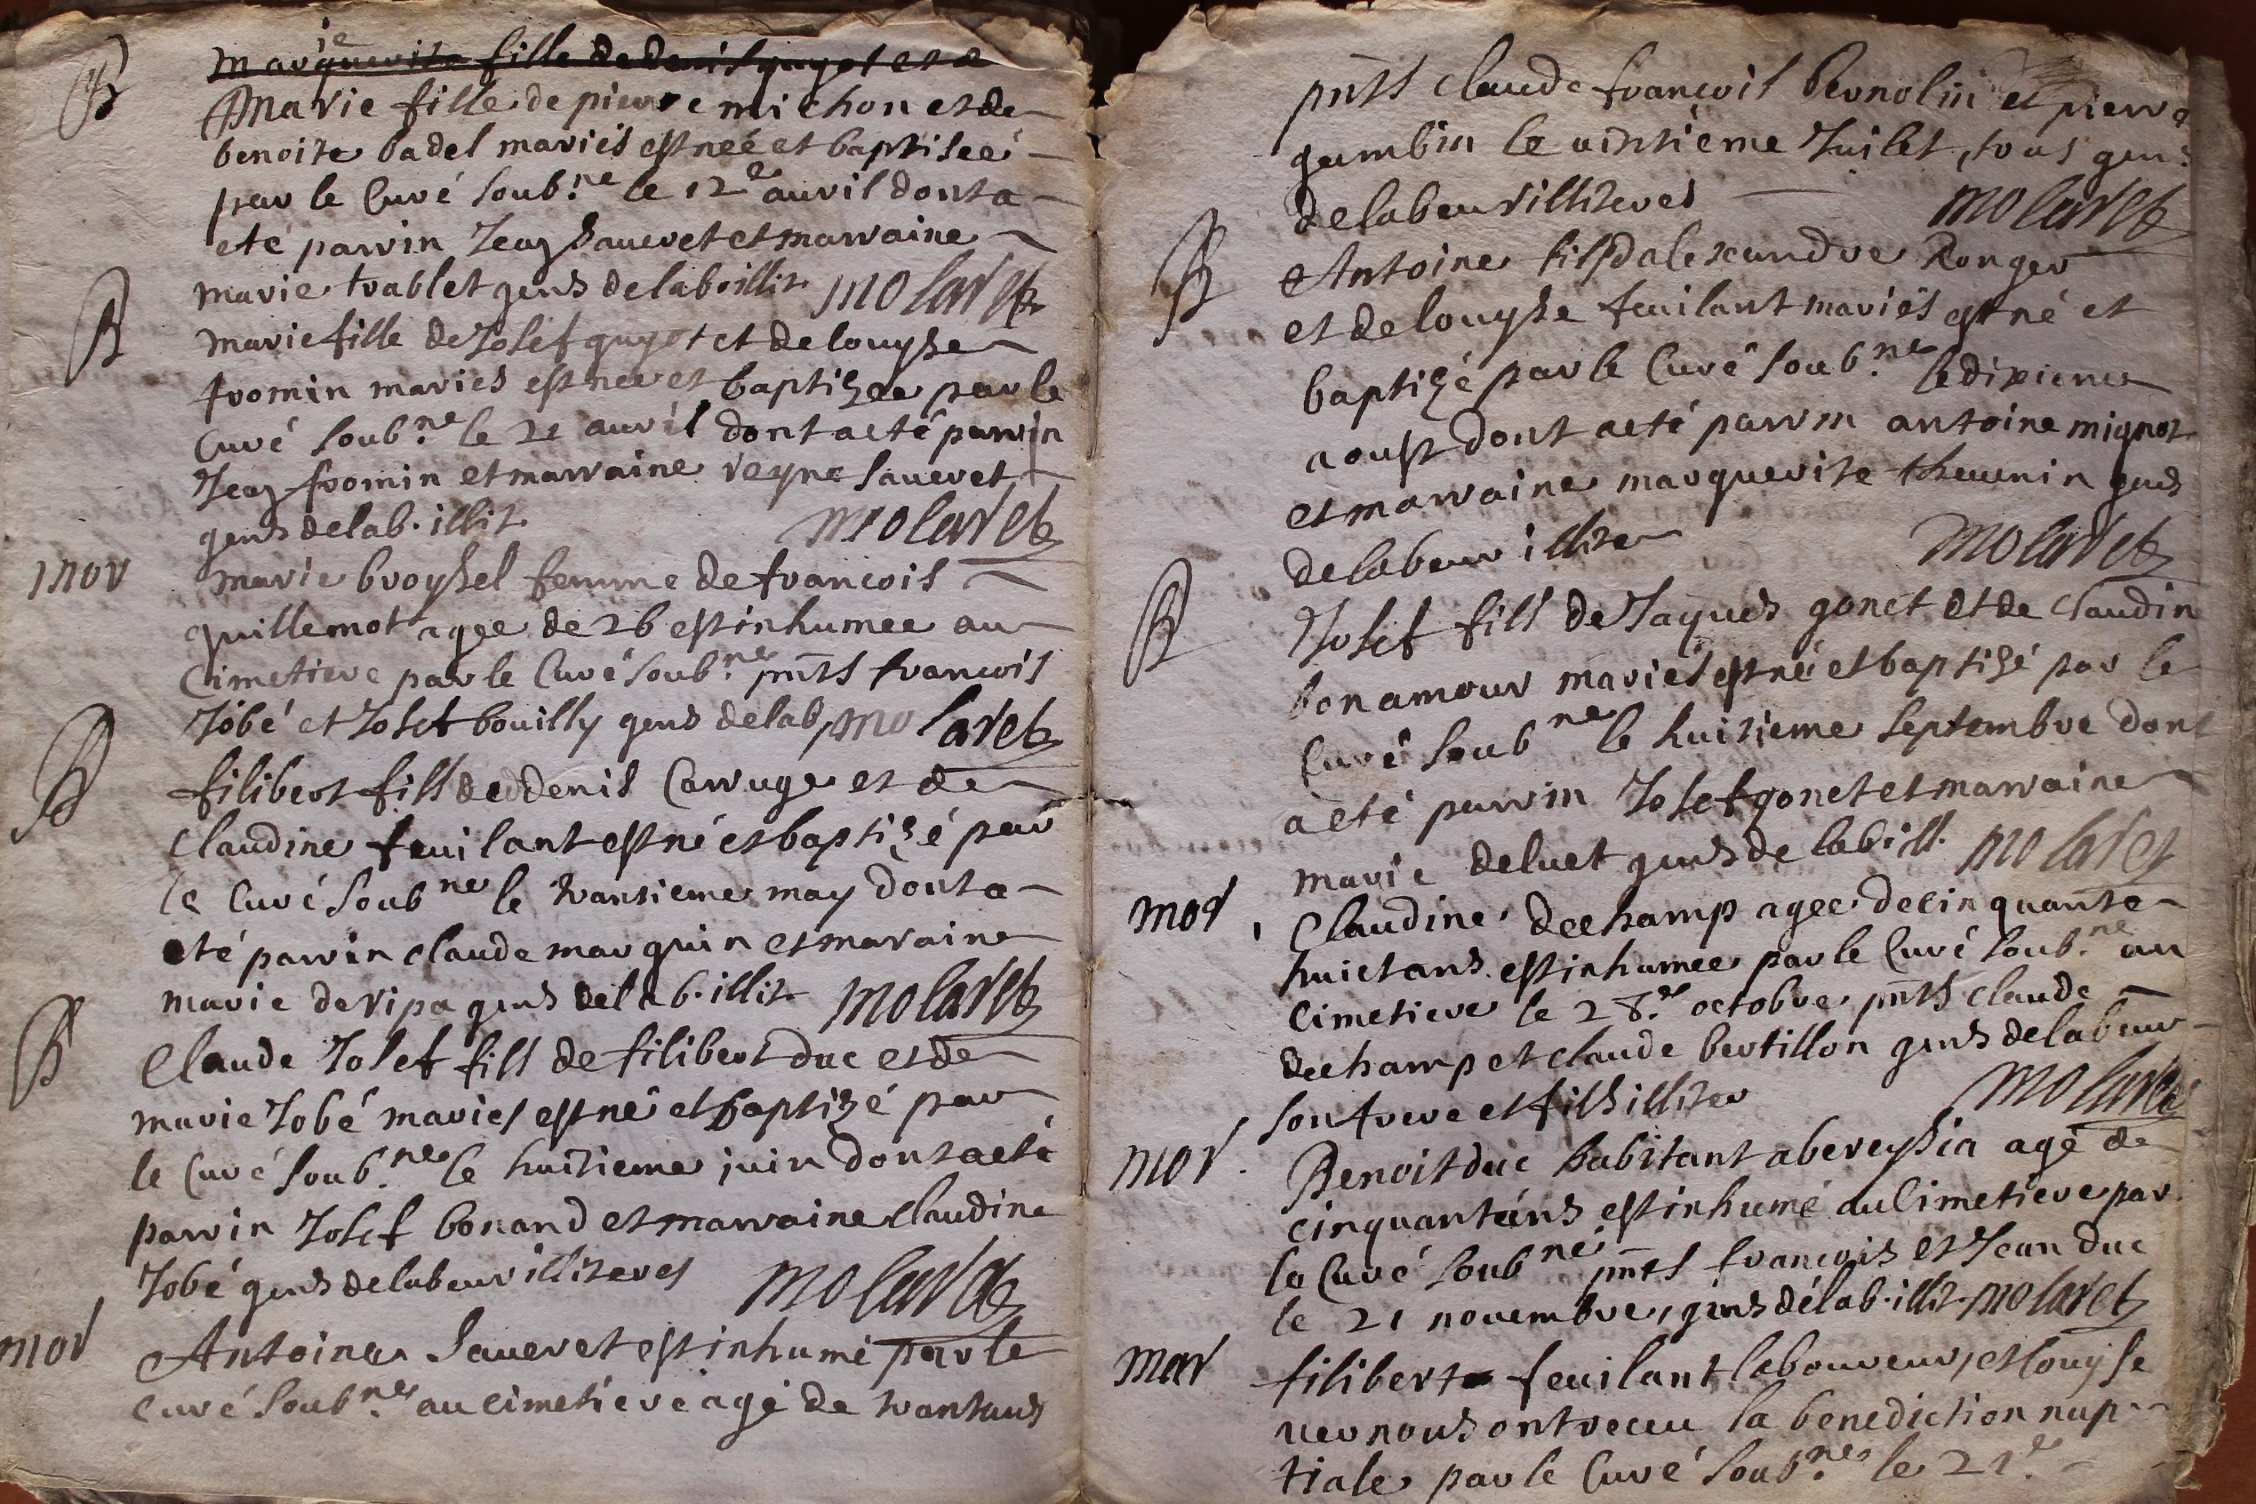 B
marguerite fille de denis guyot et de
Marie fille de pierre michon et de
benoite badel mariés est neé et baptiseé
par le Curé soub.ne le 12e auril dont a
eté parrin Jean saueret et marraine
marie trablet gens de lab. illit. molaret
B
marie fille de Josef guyot et de louyse
fromin mariés est neé et baptizee par le
Curé soub.ne le 21 auril dont a eté parrin
Jean fromin et marraine reyne saueret
gens de lab. illit. molaret
mor
marie broyssel femme de francois
guillemot agee de 26 est inhumee au
Cimetiere par le Curé soub.ne pnts francois
Jobé et Josef bouilly gens de lab molaret
B
filibert fils de denis Carruge et de
Claudine feuilant est né et baptizé par
le Curé soub.ne le trantieme may dont a
eté parrin claude marquin et maraine
marie deripa gens de lab. illit. molaret
B
Claude Josef fils de filibert duc et de
marie Jobé mariés est né et baptizé par
le Curé soub.ne le huitieme juin dont a eté
parrin Josef bonand et marraine claudine
Jobé gens de labeur illiteres molaret
mor
Antoine saueret est inhumé par le
Curé soub.ne au cimetiere agé de trant ans
pnts claude francois bernolin et pierre
gambin le vintième Juilet, tous gens
de labeur illiteres molaret
B
Antoine fils dalexandre Ronger
et de louyse feuilant mariés est né et
baptizé par le Curé soub.ne le dixieme
aoust dont a eté parrin antoine mignot
et marraine marguerite theuenin gens
de labeur illite molaret
B
Josef fils de Jaques gonet et de Claudin
bonamour mariés est né et baptizé par le
Curé soub.ne le huitieme septembre dont
a eté parrin Josef gonet et marraine
marie deluet gens de lab ill. molaret
mor
Claudine dechamp agee de cinquante
huict ans est inhumee par le Curé soub.ne au
Cimetiere le 28.e octobre pnts claude
dechamp et claude bertillon gens de labeur
son frere et fils illiter molaret
mor
Benoit duc habitant a bereysia agé de
cinquant ans est inhumé au Cimetiere par
le Curé soub.ne pnts francois et Jean duc
le 21 nouembre, gens de lab. illit. molaret
mar
filibert feuilant laboureur, et louyse
uernous ont receu la benediction nup-
tiale par le Curé soub.ne le 21.e